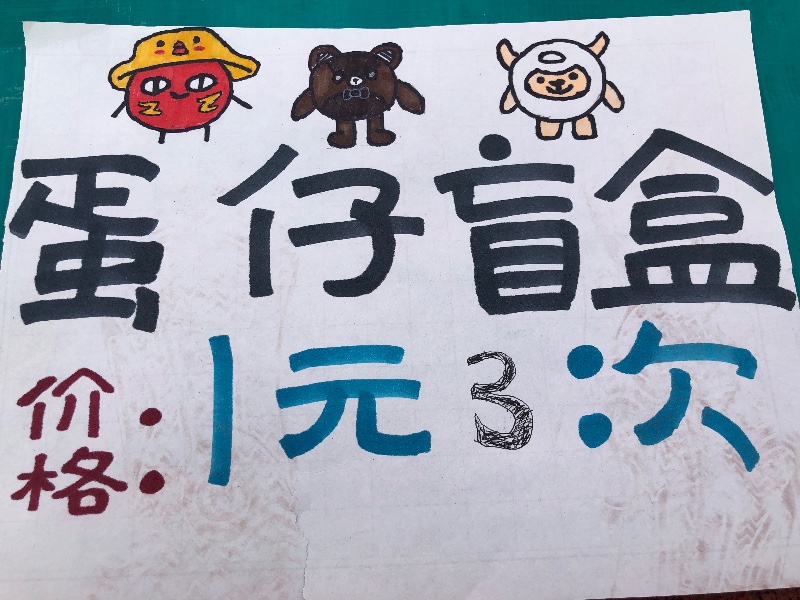 蛋仔盲盒
价格:1元3次